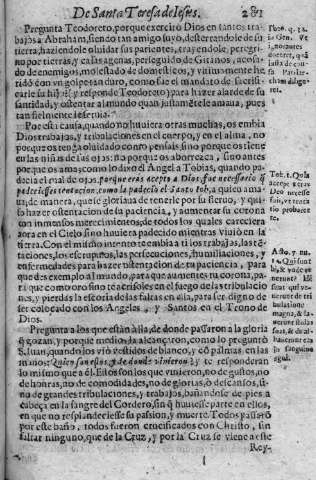 De Santa Teresa de Iesus. 281
Pregunta Teodoreto, por que exercitò Dios en tantos tra-
bajos a Abraham, siendo tan amigo suyo, desterrandole de su
tierra, haziendole oluidar sus parientes, trayendole, peregri-
no por tierras, y casas agenas, perseguido de Gitanos, acosa-
do de enemigos, molestado de domesticos, y vltimamente he
rido con vn golpe tan duro, como fue el mandato de sacrifi-
carle su hijo? y responde Teodoreto para hazer alarde de su
santidad, y ostentar al mundo quan justamẽte le amaua, pues
tan fielmente le seruia.
Por esta causa, quando no huuiera otras muchas, os embia
Dios trabajos, y tribulaciones en el cuerpo, y en el alma, no
porque os tenga oluidado como pensais sino porque os tiene
en las niñas de sus ojos: no porque os aborrezca, sino antes
porque os ama; como lo dixo el Angel a Tobias, quando pa-
decia el trabajo de
porque eras acepto a Dios, fue necessario q̃
padeciesses tentacion, como la padeciò el Santo Iob, a quien ama-
ua, de manera, que se gloriaua de tenerle por su sieruo, y qui-
so hazer ostentacion de su paciencia, y aumentar su corona
con inmensos merecimientos, de todos los quales careciera
aora en el Cielo si no huuiera padecido mientras viuiò en la
tierra. Con el mismo intento embia a ti los trabajos, las tẽ-
taciones, los escrupulos, las persecuciones, humiliaciones, y
enfermedades para hazer ostentacion de tu paciencia, para
que des exemplo al mundo, para que aumentes tu corona, pa-
ra que como oro fino te acrisoles en el fuego de la tribulaciõ,
y pierdas la escoria de las faltas en ella, para ser digno de
ser colocado con los Angeles, y Santos en el Trono de
Dios.
Pregunta a los que estàn allà, de donde passaron a la gloria
q̃ gozan, y porque medio la alcançaron, como lo preguntò
S. Iuan, quando los viò vestidos de blanco, y cõ palmas en las
manos: Quien son estos, y de donde vinieron? y te responderàn
lo mismo que a èl. Estos son los que vinieron, no de gustos, no
de honras, no de comodidades, no de glorias, ò descansos, si-
no de grandes tribulaciones, y trabajos, bañandose de pies a
cabeça en la sangre del Cordero, sin q̃ huuiesse parte en ellos,
en que no resplandeciesse su passion, y muerte. Todos passarõ
por este baño, todos fueron crucificados con Christo, sin
faltar ninguno, que de la Cruz, y por la Cruz se viene a este
Rey-